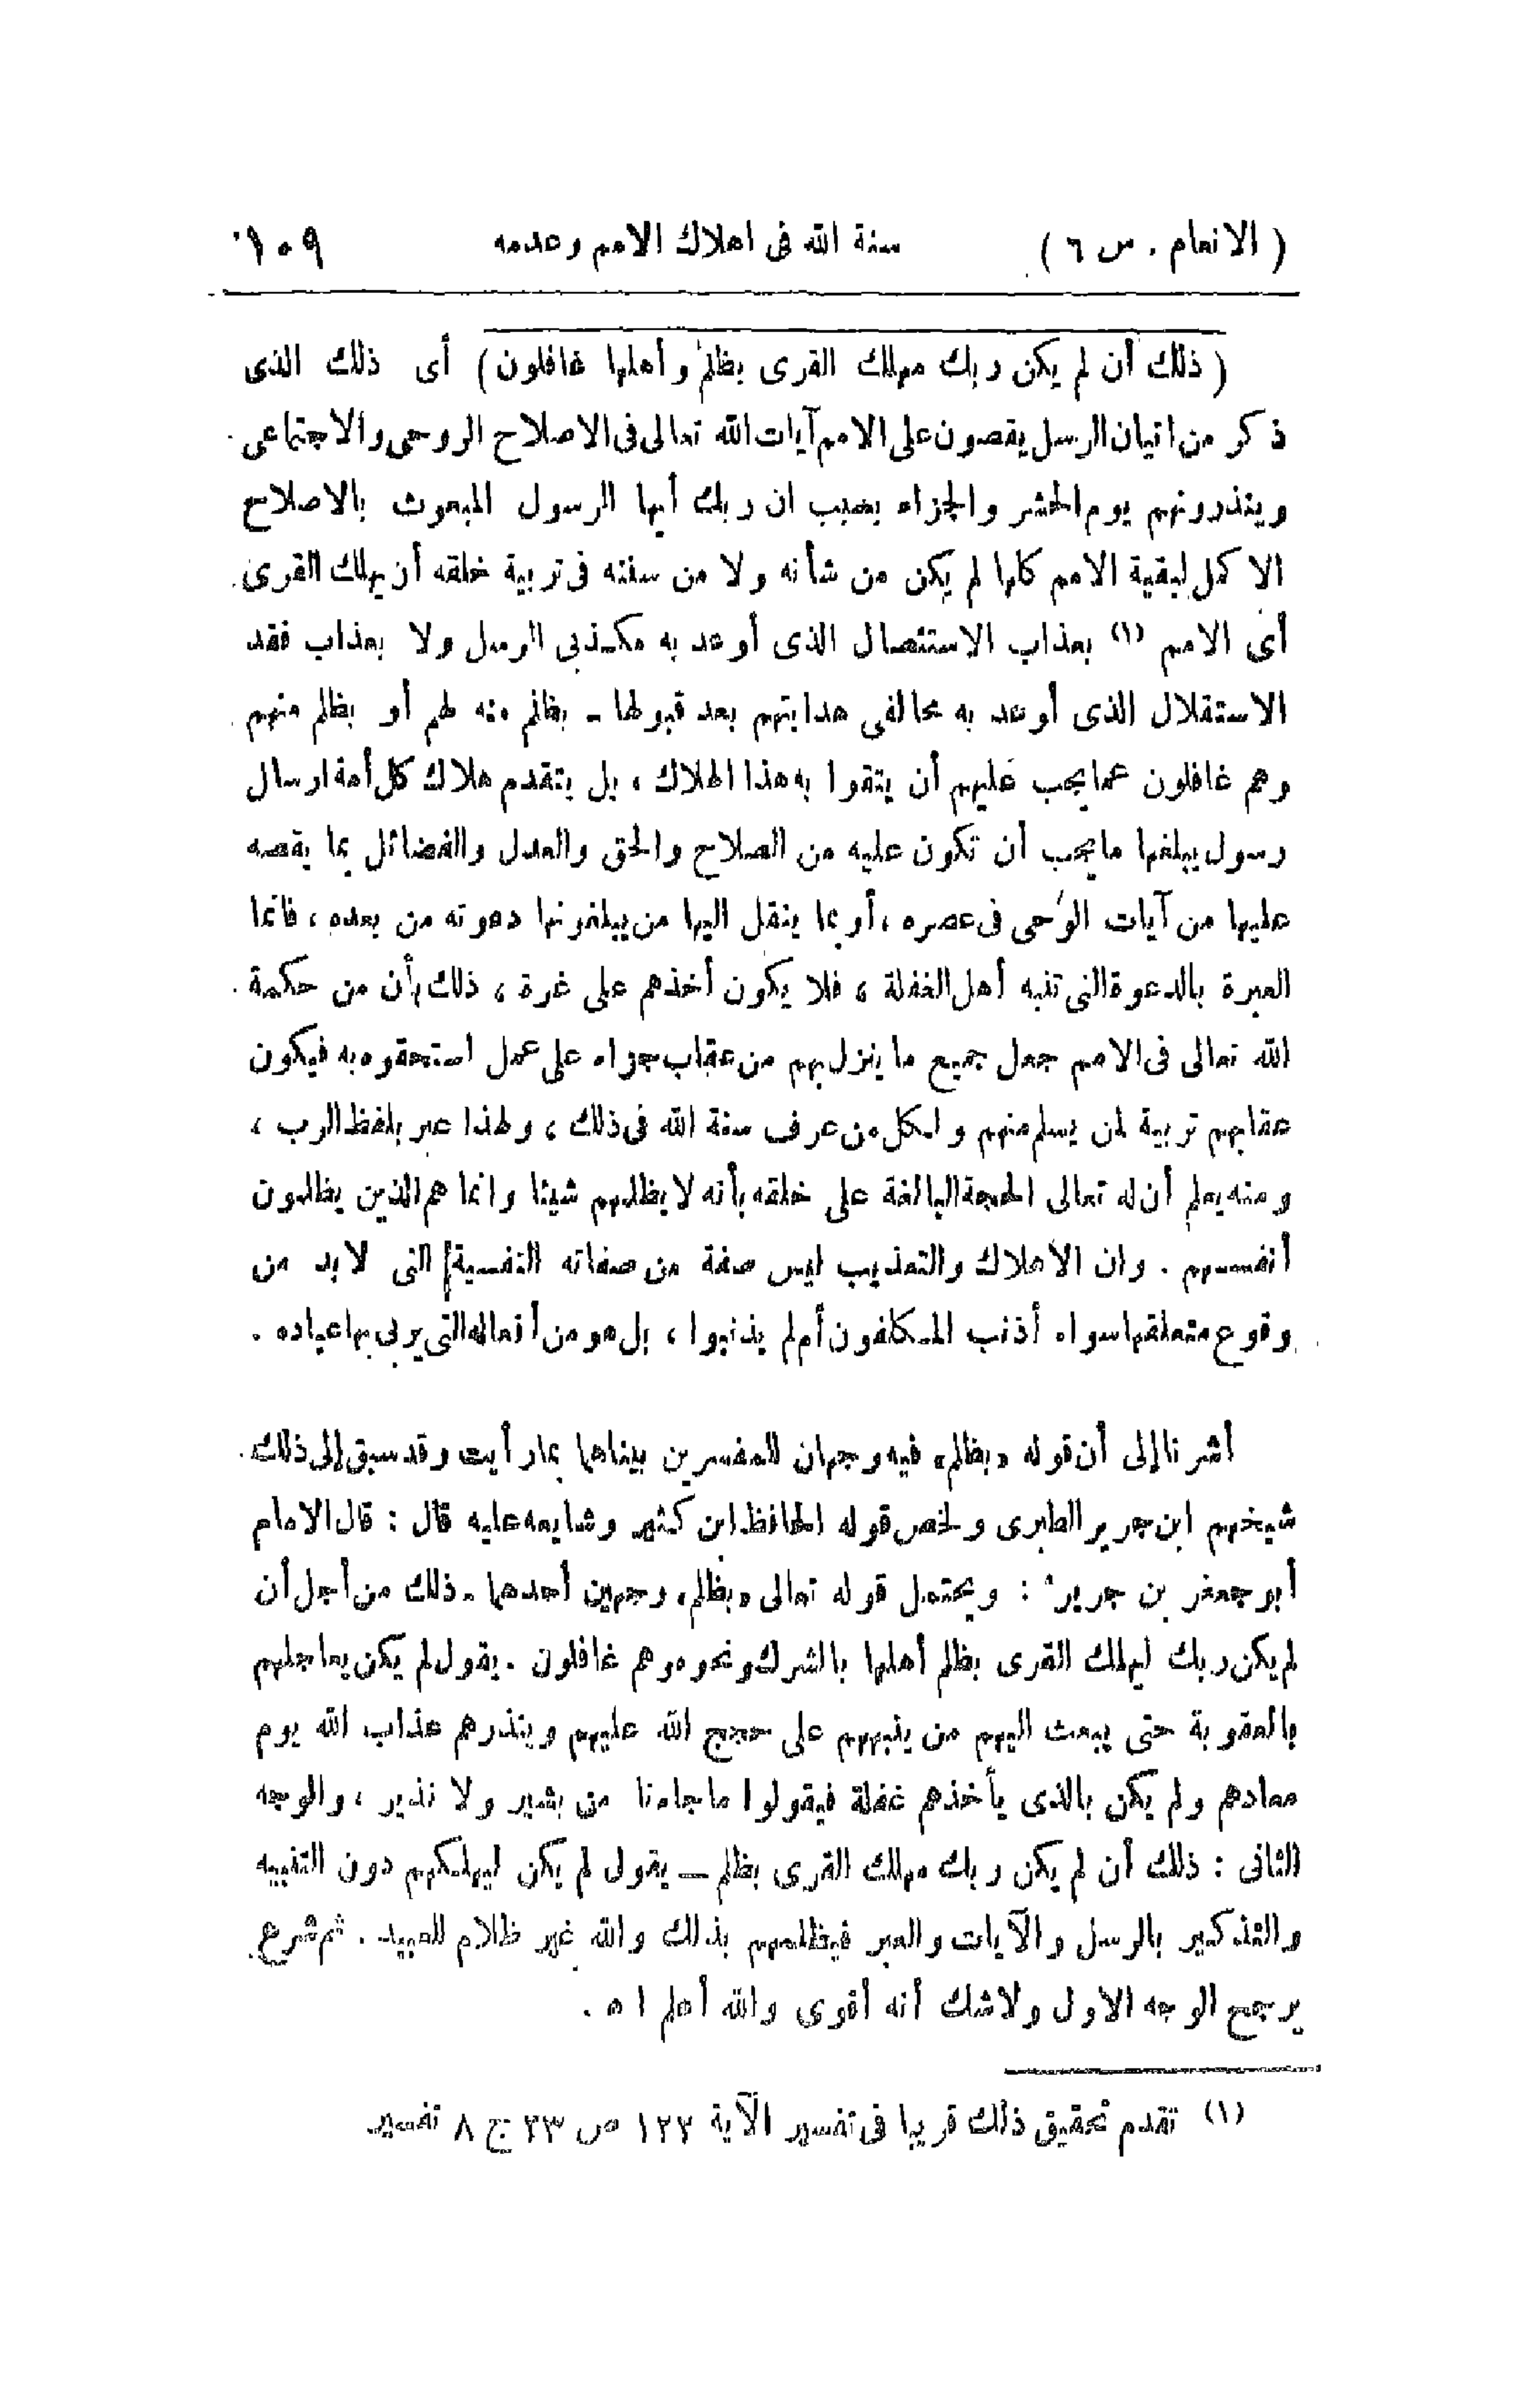 ( الانعام . س ٦ ) سنة الله فى اهلاك الامم وعدمه ١٠٩
( ذلك أن لم يكن ربك مهلك القرى بظلم وأهلها غافلون ) أى ذلك الذى
ذكر من اتيان الرسل يقصون على الامم آيات الله تعالى فى الاصلاح الروحى والاجتماعى
وينذرونهم يوم الحشر والجزاء بسبب ان ربك أيها الرسول المبعوث بالاصلاح
الاكمل لبقية الامم كلها لم يكن من شأنه ولا من سننه فى تربية خلقه أن يهلك القرى
أى الامم (١) بعذاب الاستئصال الذى أوعد به مكذبى الرسل ولا بعذاب فقد
الاستقلال الذى أوعد به مخالفى هدايتهم بعد قبولها - بظلم منه لهم أو بظلم منهم
وهم غافلون عما يجب عليهم أن يتقوا به هذا الهلاك ، بل يتقدم هلاك كل أمة ارسال
رسول يبلغها ما يجب أن تكون عليه من الصلاح والحق والعدل والفضائل بما يقصه
عليها من آيات الوحى فى عصره ، أو بما ينقل اليها من يبلغونها دعوته من بعده ، فانما
العبرة بالدعوة التى تنبه أهل الغفلة ، فلا يكون أخذهم على غرة ، ذلك بأن من حكمة
الله تعالى فى الامم جعل جميع ما ينزل بهم من عقاب جزاء على عمل استحقوه به فيكون
عقابهم تربية لمن يسلم منهم ولكل من عرف سنة الله فى ذلك ، ولهذا عبر بلفظ الرب ،
ومنه يعلم أن لله تعالى الحجة البالغة على خلقه بأنه لا يظلمهم شيئا وانما هم الذين يظلمون
أنفسهم . وان الاهلاك والتعذيب ليس صفة من صفاته النفسية التى لا بد من
وقوع متعلقها سواء أذنب المكلفون أم لم يذنبوا ، بل هو من أفعاله التى يربى بها عباده .
أشرنا إلى أن قوله «بظلم» فيه وجهان للمفسرين بيناهما بما رأيت وقد سبق إلى ذلك
شيخهم ابن جرير الطبرى ولخص قوله الحافظ ابن كثير وشايعه عليه قال : قال الامام
أبو جعفر بن جرير : ويحتمل قوله تعالى «بظلم» وجهين أحدهما - ذلك من أجل أن
لم يكن ربك ليهلك القرى بظلم أهلها بالشرك ونحوه وهم غافلون . يقول لم يكن يعاجلهم
بالعقوبة حتى يبعث اليهم من ينبههم على حجج الله عليهم وينذرهم عذاب الله يوم
معادهم ولم يكن بالذى يأخذهم غفلة فيقولوا ما جاءنا من بشير ولا نذير ، والوجه
الثانى : ذلك أن لم يكن ربك مهلك القرى بظلم — يقول لم يكن ليهلكهم دون التنبيه
والتذكير بالرسل والآيات والعبر فيظلمهم بذلك والله غير ظلام للعبيد . ثم شرع
يرجح الوجه الاول ولا شك أنه أقوى والله أعلم ا ه .
(١) تقدم تحقيق ذلك قريبا فى تفسير الآية ١٢٣ ص ٣٣ ج ٨ تفسير